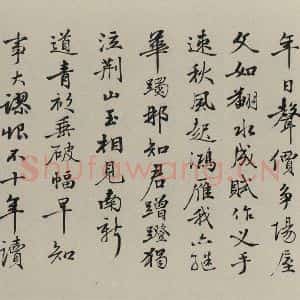 年日聲價爭場屋
文如翻水成賦作叉手
速秋風起鴻雁我亦繼
華躅那知君蹭蹬獨
泣荊山玉相見南新
道青衫垂破幅早知
事大謬恨不十年讀
Shufawang.CN